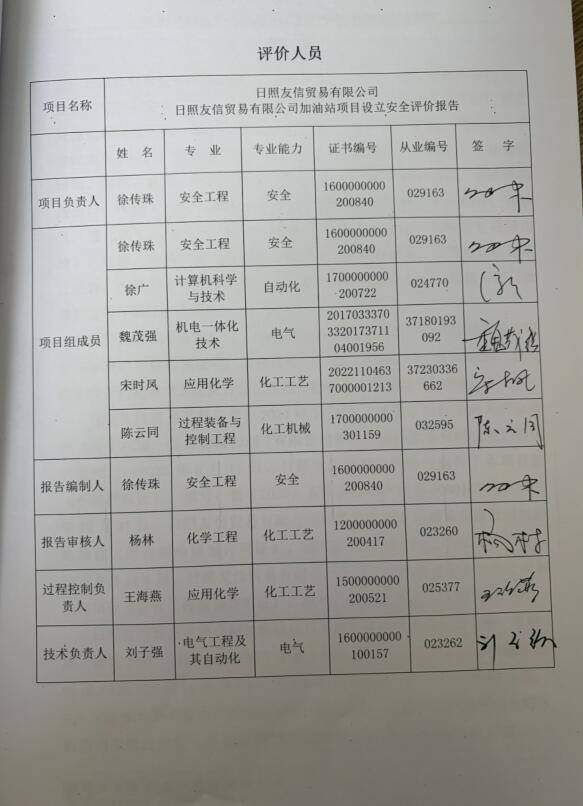 评价人员
项目名称
日照友信贸易有限公司
日照友信贸易有限公司加油站项目设立安全评价报告
姓 名 专 业 专业能力 证书编号 从业编号 签 字
项目负责人 徐传珠 安全工程 安全 1600000000
200840 029163
项目组成员
徐传珠 安全工程 安全 1600000000
200840 029163
徐广 计算机科学
与技术 自动化 1700000000
200722 024770
魏茂强 机电一体化
技术 电气 2017033370
3320173711
04001956 37180193
092 魏茂强
宋时凤 应用化学 化工工艺 2022110463
7000001213 37230336
662
陈云同 过程装备与
控制工程 化工机械 1700000000
301159 032595 陈云同
报告编制人 徐传珠 安全工程 安全 1600000000
200840 029163
报告审核人 杨林 化学工程 化工工艺 1200000000
200417 023260
过程控制负
责人 王海燕 应用化学 化工工艺 1500000000
200521 025377 王海燕
技术负责人 刘子强 电气工程及
其自动化 电气 1600000000
100157 023262 刘子强